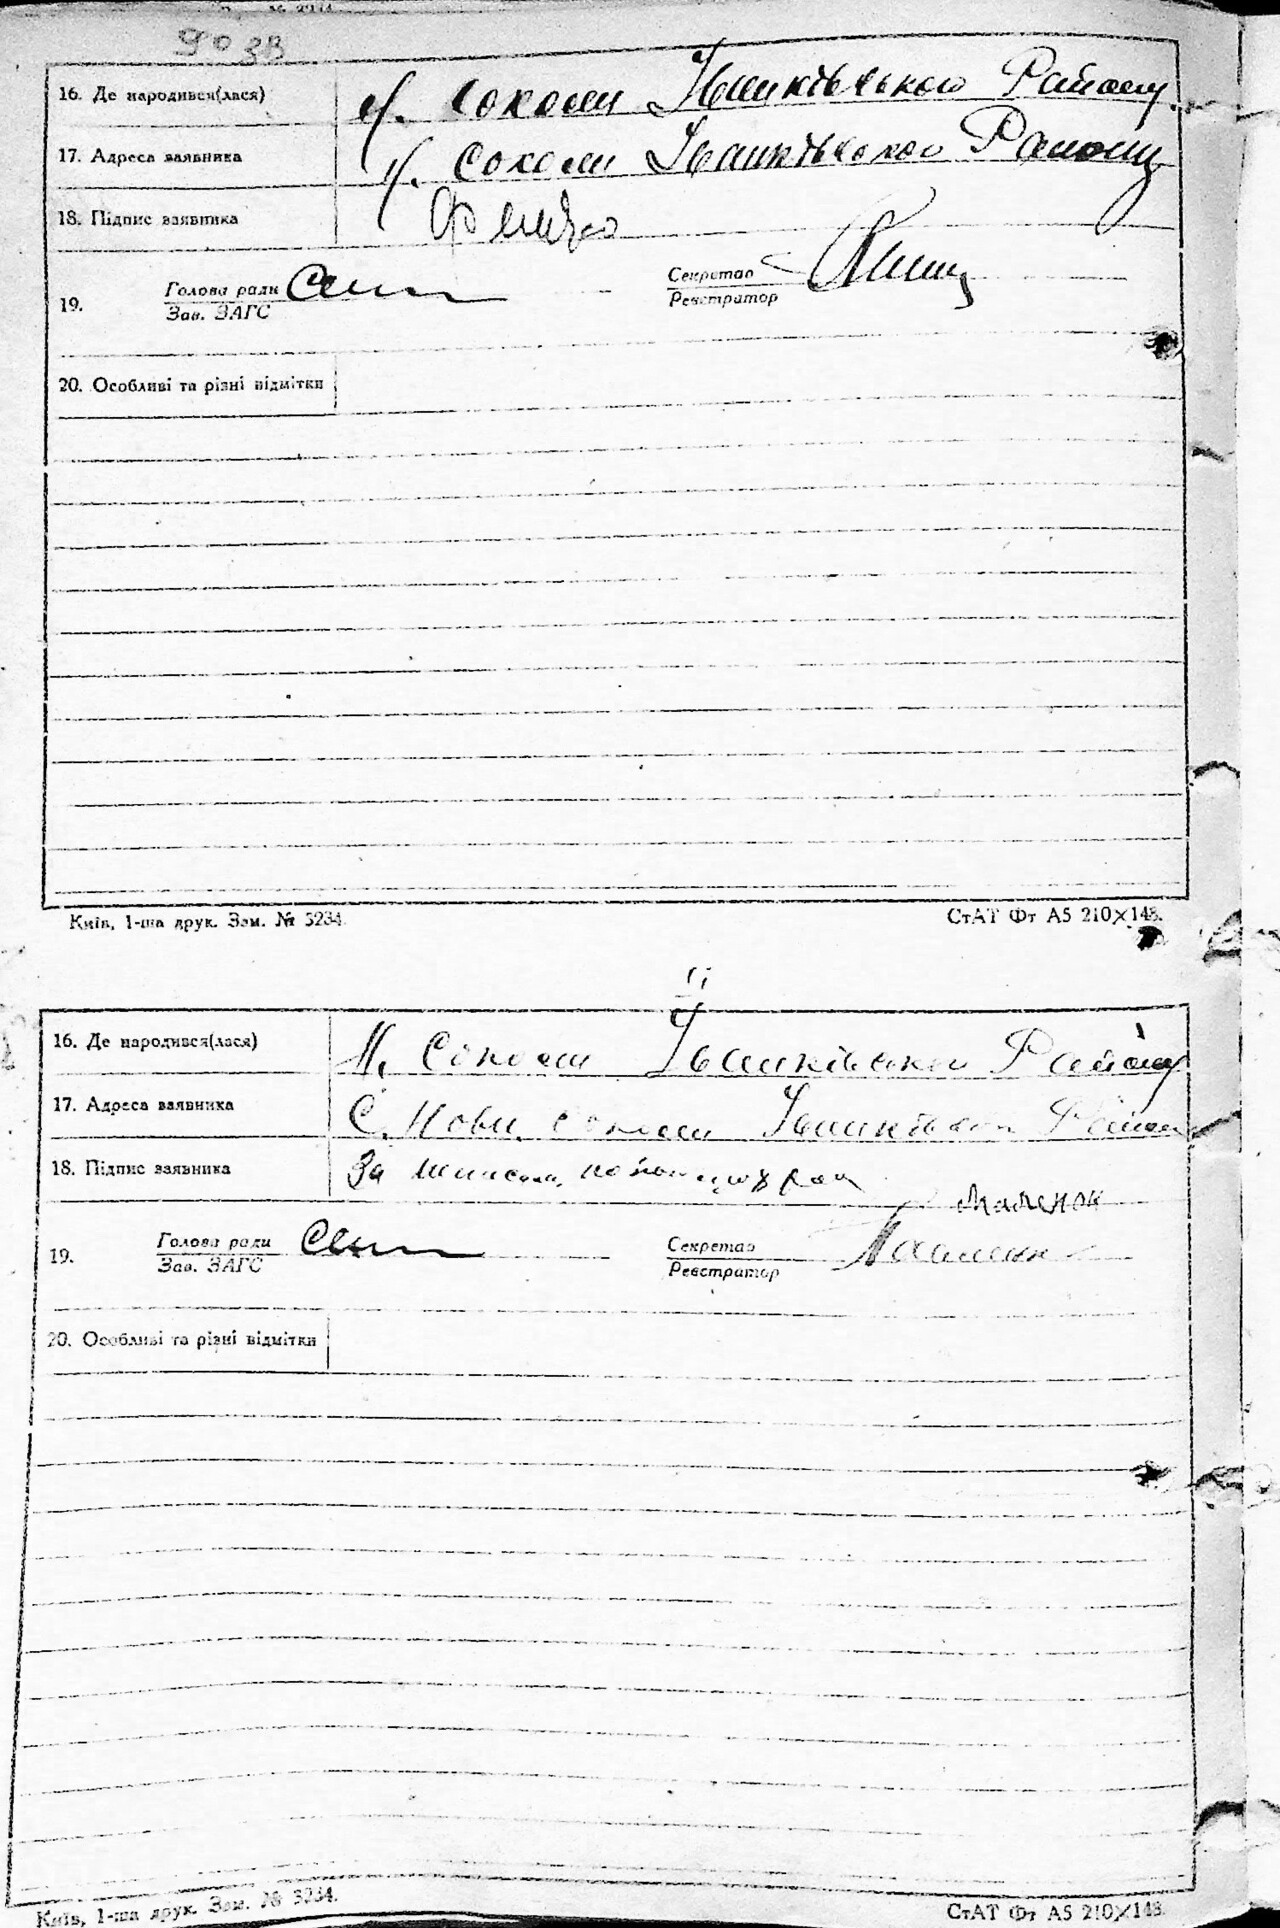 903В
16. Де народився(лася) с. Соколи Іванківського Району
17. Адреса заявника с. Соколи Іванківської Району
18. Підпис заявника
19. Голова ради
Зав. ЗАГС
Секретар
Реєстратор
20. Особливі та різні відмітки
Київ, 1-ша друк. Зам. № 3234.
СтАТ Фт А5 210×148.
16. Де народився(лася) Н. Соколи Іванківської Району
17. Адреса заявника С. Нові Соколи Іванківської Району
18. Підпис заявника За
Маленок
19. Голова ради
Зав. ЗАГС
Секретар
Реєстратор
20. Особливі та різні відмітки
Київ, 1-ша друк. Зам. № 3234.
СтАТ Фт А5 210×148.